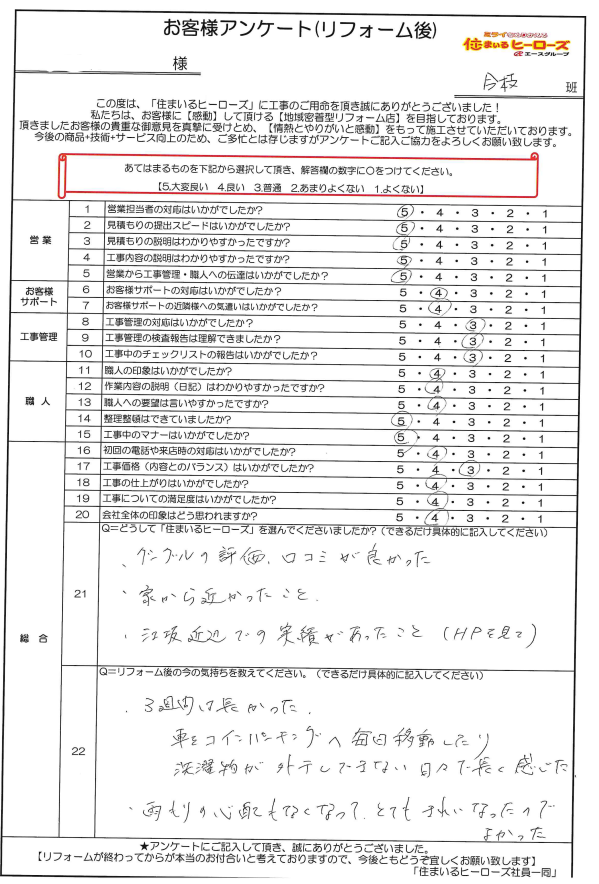 お客様アンケート(リフォーム後)
住まいるヒーローズ
エースグループ
様
班
この度は、「住まいるヒーローズ」に工事のご用命を頂き誠にありがとうございました！
私たちは、お客様に【感動】して頂ける【地域密着型リフォーム店】を目指しております。
頂きましたお客様の貴重な御意見を真摯に受けとめ、【情熱とやりがいと感動】をもって施工させていただいております。
今後の商品+技術+サービス向上のため、ご多忙とは存じますがアンケートご記入ご協力をよろしくお願い致します。
あてはまるものを下記から選択して頂き、解答欄の数字に○をつけてください。
【5.大変良い 4.良い 3.普通 2.あまりよくない 1.よくない】
営業
1 営業担当者の対応はいかがでしたか? 5・4・3・2・1
2 見積もりの提出スピードはいかがですか? 5・4・3・2・1
3 見積もりの説明はわかりやすかったですか? 5・4・3・2・1
4 工事内容の説明はわかりやすかったですか? 5・4・3・2・1
5 営業から工事管理・職人への伝達はいかがでしたか? 5・4・3・2・1
お客様サポート
6 お客様サポートの対応はいかがでしたか? 5・4・3・2・1
7 お客様サポートの近隣様への気遣いはいかがでしたか? 5・4・3・2・1
工事管理
8 工事管理の対応はいかがでしたか? 5・4・3・2・1
9 工事管理の検査報告は理解できましたか? 5・4・3・2・1
10 工事中のチェックリストの報告はいかがでしたか? 5・4・3・2・1
職人
11 職人の印象はいかがでしたか? 5・4・3・2・1
12 作業内容の説明（日記）はわかりやすかったですか? 5・4・3・2・1
13 職人への要望は言いやすかったですか? 5・4・3・2・1
14 整理整頓はできていましたか? 5・4・3・2・1
15 工事中のマナーはいかがでしたか? 5・4・3・2・1
総合
16 初回の電話や来店時の対応はいかがでしたか? 5・4・3・2・1
17 工事価格（内容とのバランス）はいかがでしたか? 5・4・3・2・1
18 工事の仕上がりはいかがでしたか? 5・4・3・2・1
19 工事についての満足度はいかがでしたか? 5・4・3・2・1
20 会社全体の印象はどう思われますか? 5・4・3・2・1
21
Q=どうして「住まいるヒーローズ」を選んでくださいましたか?（できるだけ具体的に記入してください）
、グーグルの評価、口コミが良かった
・家から近かったこと.
・江坂近辺での実績があったこと（HPを見て）
22
Q=リフォーム後の今の気持ちを教えてください。（できるだけ具体的に記入してください）
・3週間は長かった.
車をコインパーキングへ毎日移動したり
洗濯物が外干しできない日々で長く感じた
・雨もりの心配もなくなって、とてもきれいなったので
よかった
★アンケートにご記入して頂き、誠にありがとうございました。
【リフォームが終わってからが本当のお付合いと考えておりますので、今後ともどうぞ宜しくお願い致します】
「住まいるヒーローズ社員一同」